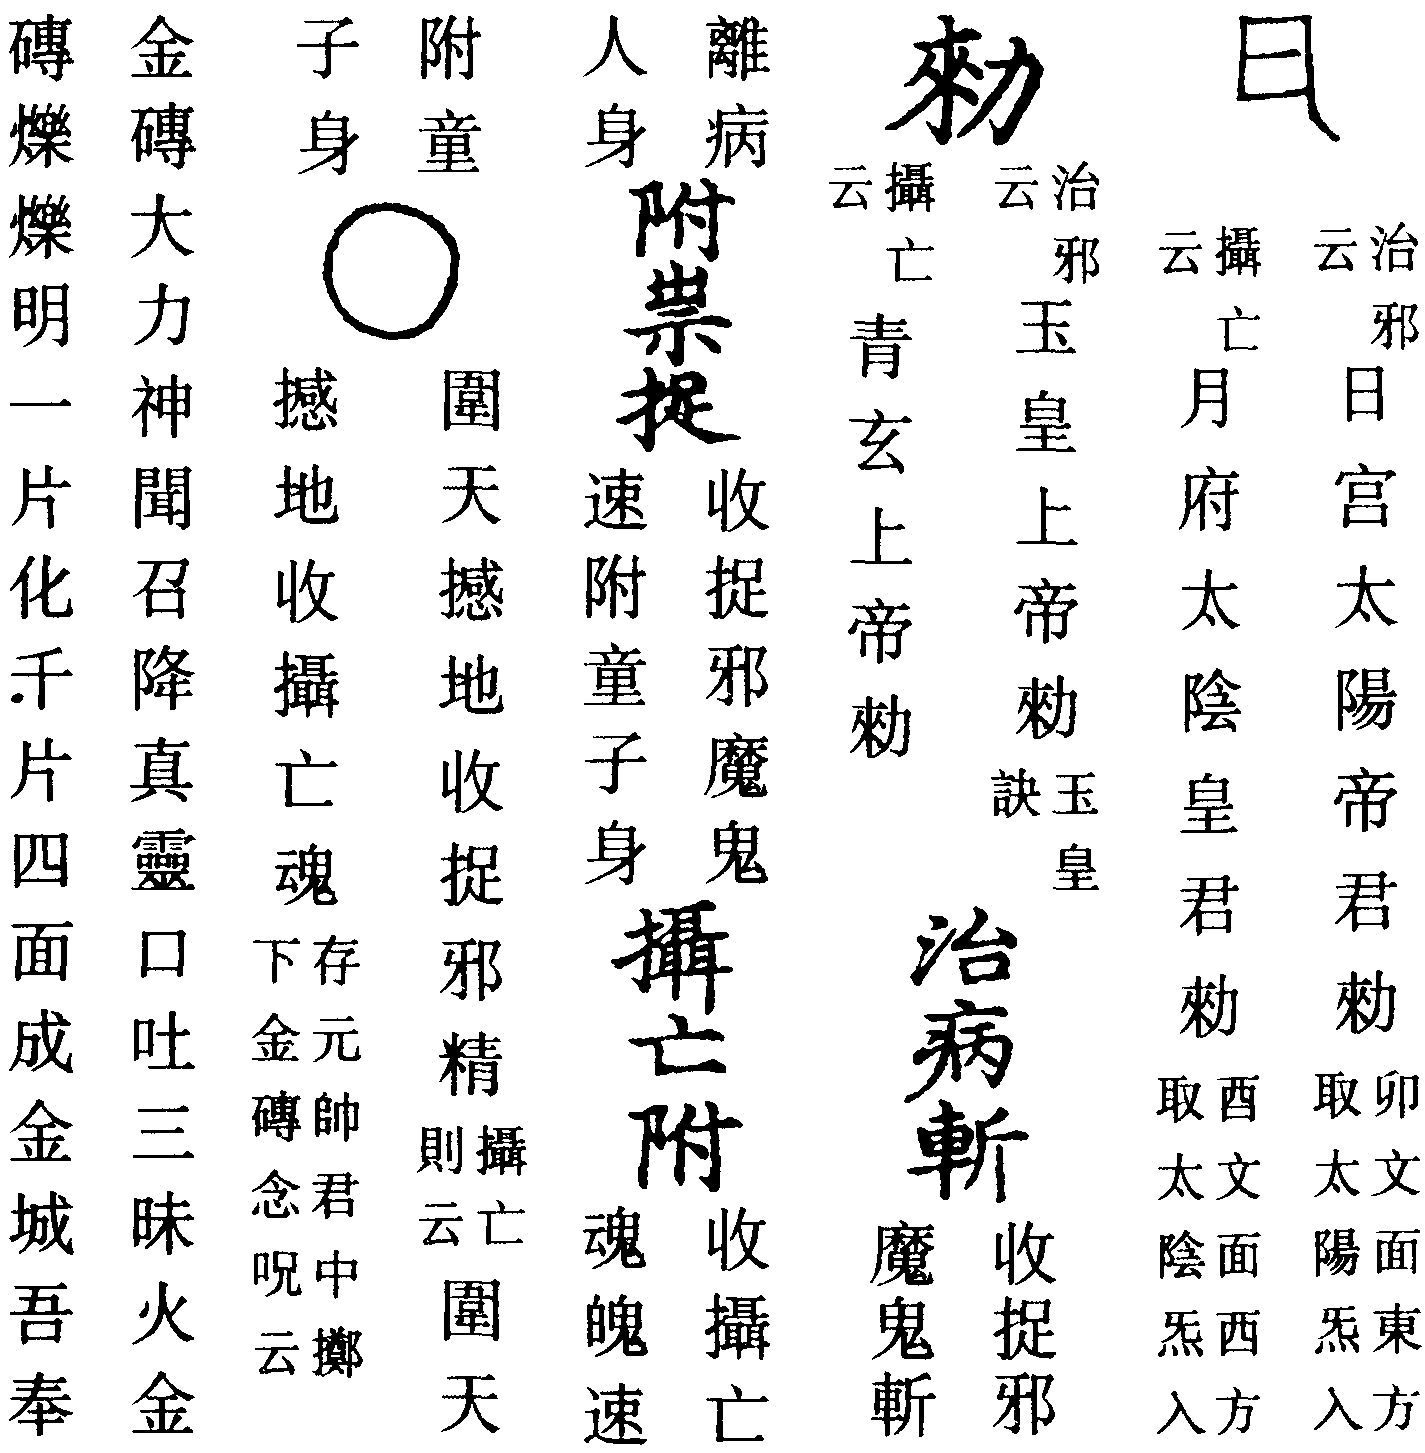 日
治邪云日宫太陽帝君勑卯文面東方取太陽炁入
攝亡云月府太陰皇君勑酉文面西方取太陰炁入
勑
治邪云玉皇上帝勑玉皇訣
攝亡云青玄上帝勑
治病斬
收捉邪
魔鬼斬
離病
人身
附祟捉
收捉邪魔鬼
速附童子身
攝亡附
收攝亡
魂魄速
附童
子身
○
圍天撼地收捉邪精攝亡則云圍天
撼地收攝亡魂存元帥君中擲下金磚念呪云
金磚大力神聞召降真靈口吐三昧火金
磚爍爍明一片化千片四面成金城吾奉